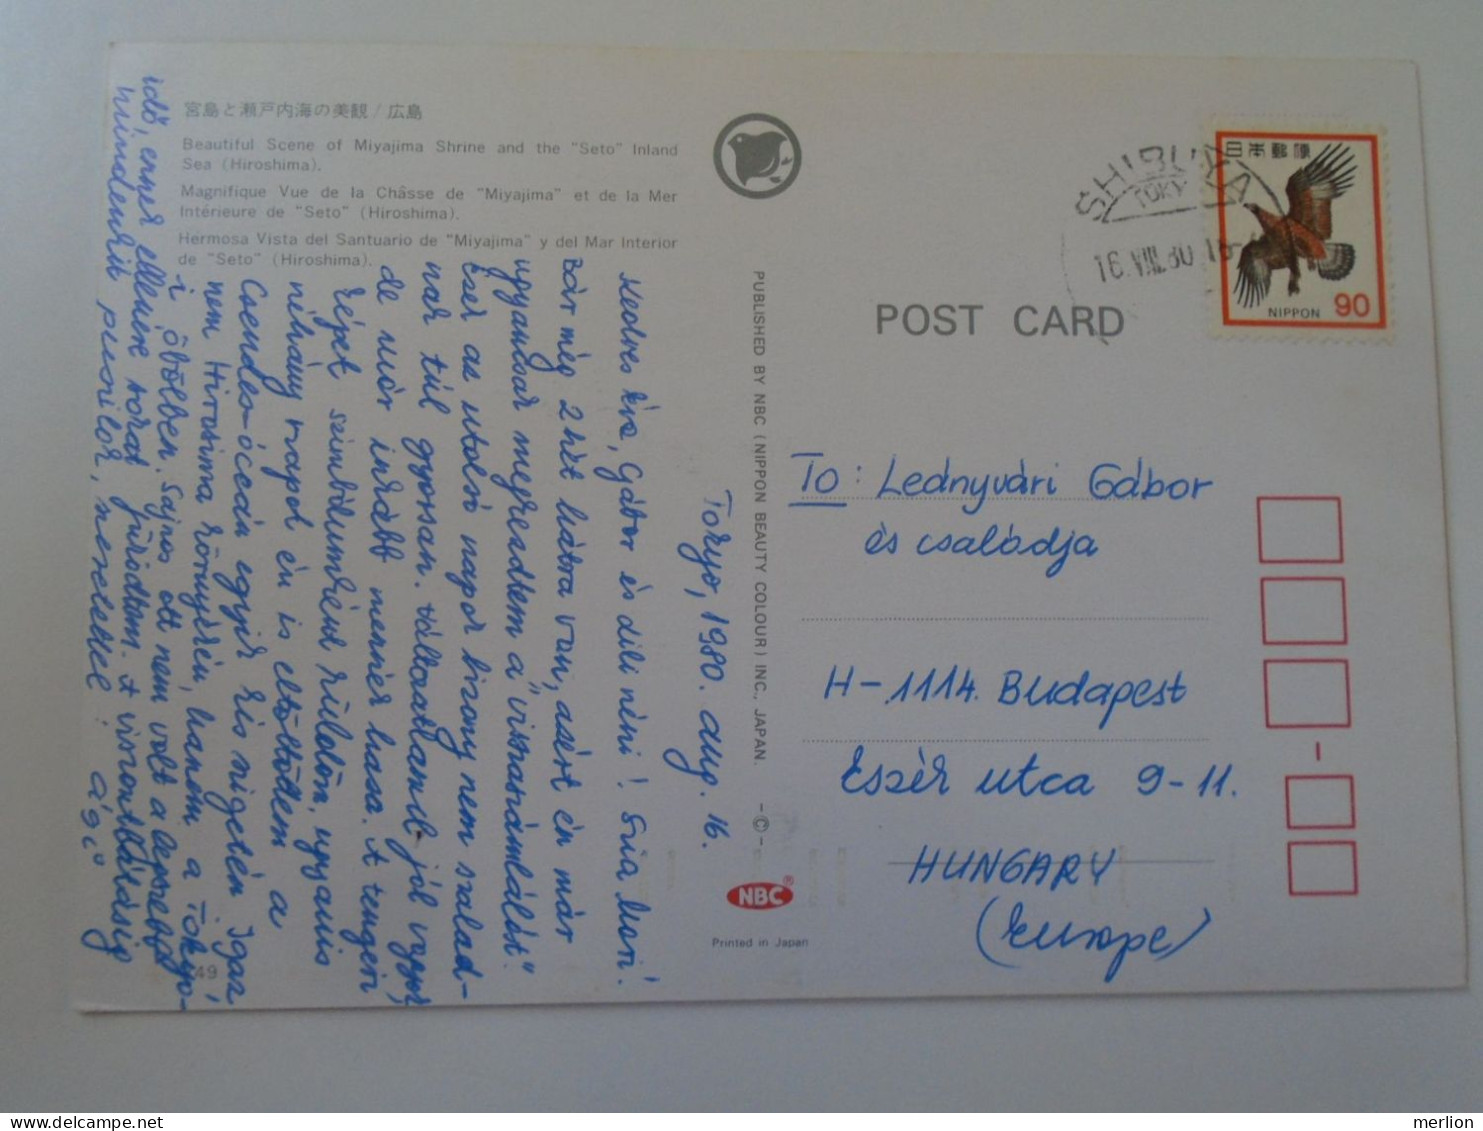 宮島と瀬戸内海の美観 / 広島
Beautiful Scene of Miyajima Shrine and the "Seto" Inland
Sea (Hiroshima).
Magnifique Vue de la Châsse de "Miyajima" et de la Mer
Intérieure de "Seto" (Hiroshima).
Hermosa Vista del Santuario de "Miyajima" y del Mar Interior
de "Seto" (Hiroshima).
Tokyo, 1980. aug. 16.
Kedves Éva, Gábor és dili néni! Szia Mari!
Bár még 2 hét hátra van, azért én már
ugyancsak megkezdtem a "visszaszámlálást".
Ezek az utolsó napok bizony nem szalad-
nak túl gyorsan. Változatlanul jól vagyok,
de már inkább mennék haza. A tengeri
képet szimbólumként küldöm, ugyanis
néhány napot én is eltöltöttem a
Csendes-óceán egyik kis szigetén. Igaz
nem Hirosima környékén, hanem a Tokyó-
i öbölben. Sajnos ott nem volt a legszebb
idő, ennek ellenére sokat fürödtem. A viszontlátásig
mindenkit puszilok, szeretettel: Ági
49
PUBLISHED BY NBC (NIPPON BEAUTY COLOUR) INC., JAPAN. -©-
NBC®
Printed in Japan
POST CARD
SHIBUYA
TOKY
16.VIII.80 18-
日本郵便
NIPPON 90
To: Leányvári Gábor
és családja
H-1114. Budapest
Eszék utca 9-11.
HUNGARY
(Europe)
merlion